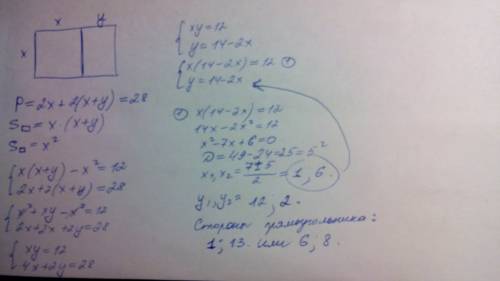 x y
x
P=2x+2(x+y)=28
S□=x·(x+y)
S□=x²
{x(x+y)-x²=12
2x+2(x+y)=28
{x²+xy-x²=12
2x+2x+2y=28
{xy=12
4x+2y=28
{xy=12
y=14-2x
{x(14-2x)=12 ①
y=14-2x
① x(14-2x)=12
14x-2x²=12
x²-7x+6=0
D=49-24=25=5²
x₁,x₂=7±5/2=1,6.
y₁,y₂=12;2.
Стороны прямоугольника:
1;13. или 6;8.